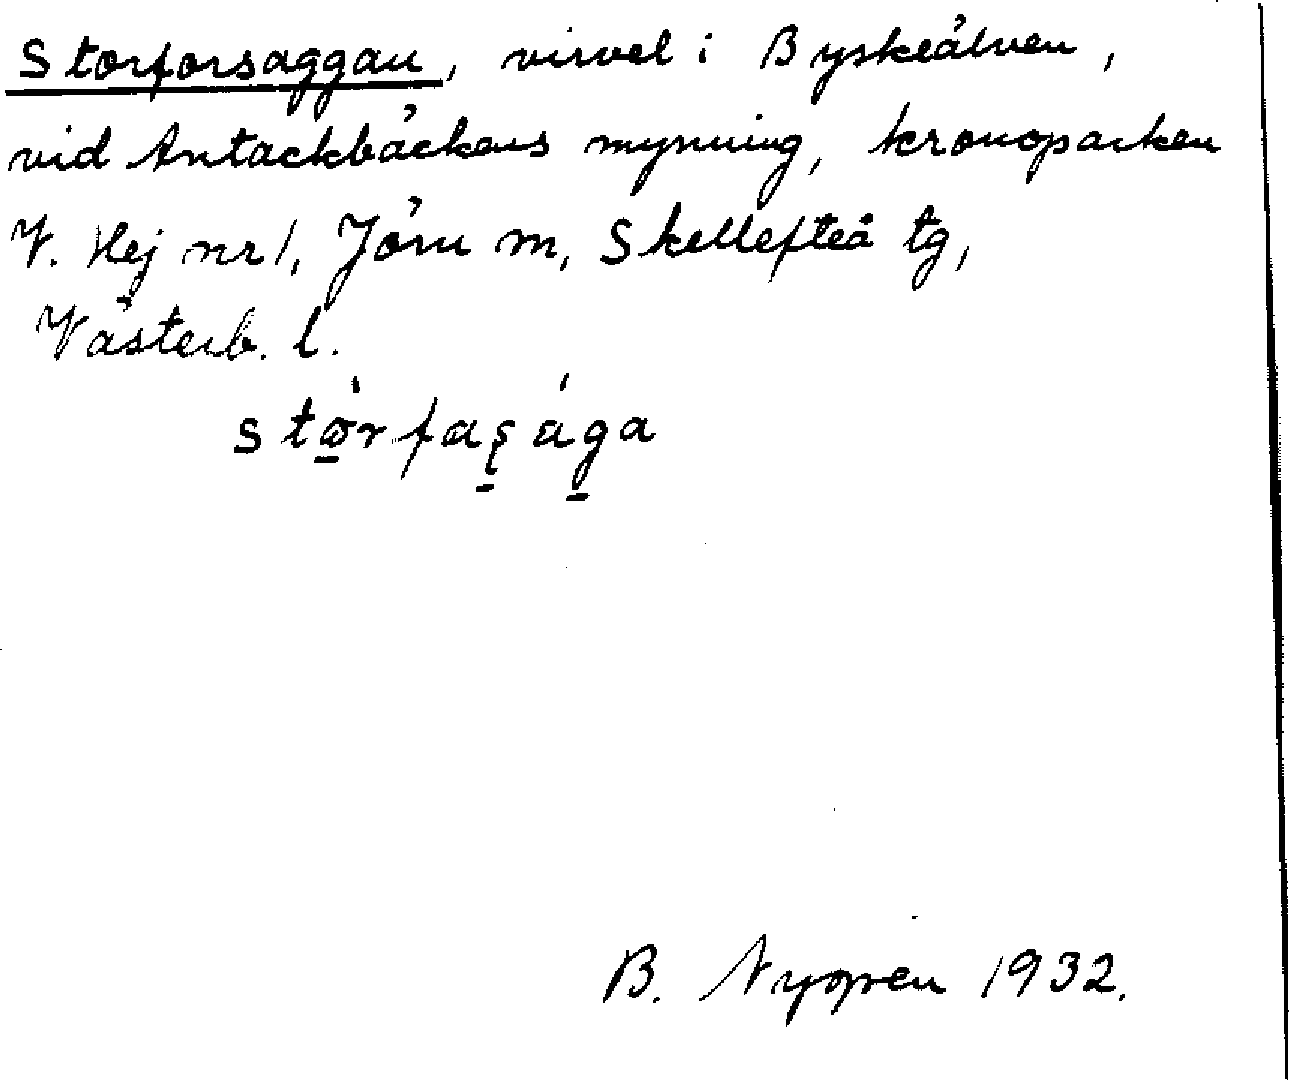 Storforsaggan, virvel i Byskeälven,
vid Antackbäckens mynning, kronoparken
V. Hej nr 1, Jörn m, Skellefteå tg,
Västerb. l.
B. 1932.